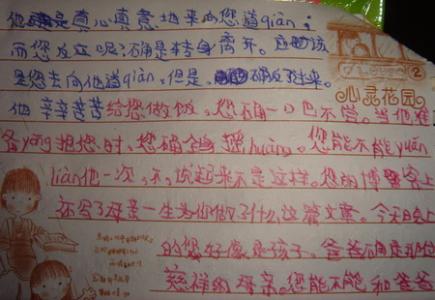 他是真心真意地来向您道qiān;
而您反应呢?确是转身离开。应该
是您去向他道qiān,但是, 确反过来。
2
心灵花园
他辛辛苦苦给您做饭,您确一口也不尝。当他准
备yòng抱您时,您确全身摇huàng。您能不能yuán
liàng他一次,不,说起来不是这样。您的博客上
还写了母亲一生为你做了什么这篇文章。今天晚上
的您好像是孩子,爸爸确是那位
慈祥的母亲。您能不能和爸爸